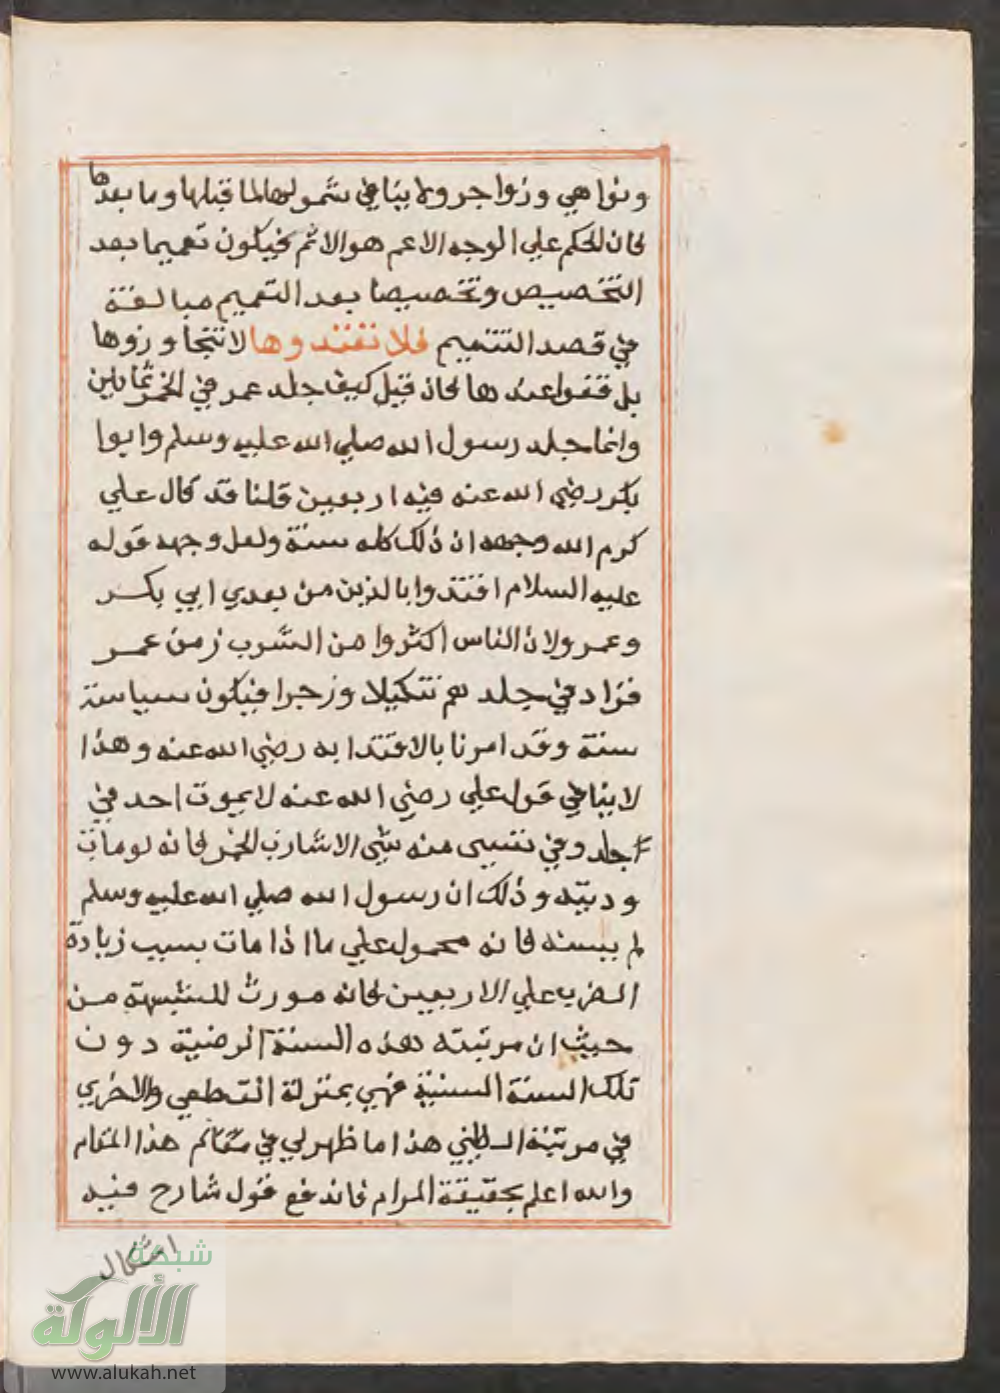 ونواهي وزواجر ولا ينافي شمولها لما قبلها وما بعدها
فان الحكم علي الوجه الاعم هو الاتم فيكون تعميما بعد
التخصيص وتخصيصا بعد التعميم مبالغة
في قصد التتميم فلا تعتدوها لا تتجاوزوها
بل قفوا عندها فان قيل كيف جلد عمر في الخمر ثمانين
وانما جلد رسول الله صلي الله عليه وسلم وابوا
بكر رضي الله عنه فيه اربعين قلنا قد قال علي
كرم الله وجهه ان ذلك كله سنة ولعل وجهه قوله
عليه السلام اقتدوا بالذين من بعدي ابي بكر
وعمر ولان الناس اكثروا من الشرب زمن عمر
فزاد في جلدهم تنكيلا وزجرا فيكون سياسة
سنة وقد امرنا بالاقتدا به رضي الله عنه وهذا
لا ينافي قول علي رضي الله عنه لا يموت احد في
جلد وفي نفسي منه شي الا شارب الخمر فانه لو مات
وديته وذلك ان رسول الله صلي الله عليه وسلم
لم يسنه فانه محمول علي ما اذا مات بسبب زيادة
الضرب علي الاربعين فانه مورث للشبهة من
حيث ان مرتبته هذه السنة الرضية دون
تلك السنة السنية فهي بمنزلة القطعي والاخري
في مرتبة الظني هذا ما ظهر لي في هذا المقام
والله اعلم بحقيقة المرام فاندفع قول شارح فيه
اشكال
شبكة
الألوكة
www.alukah.net